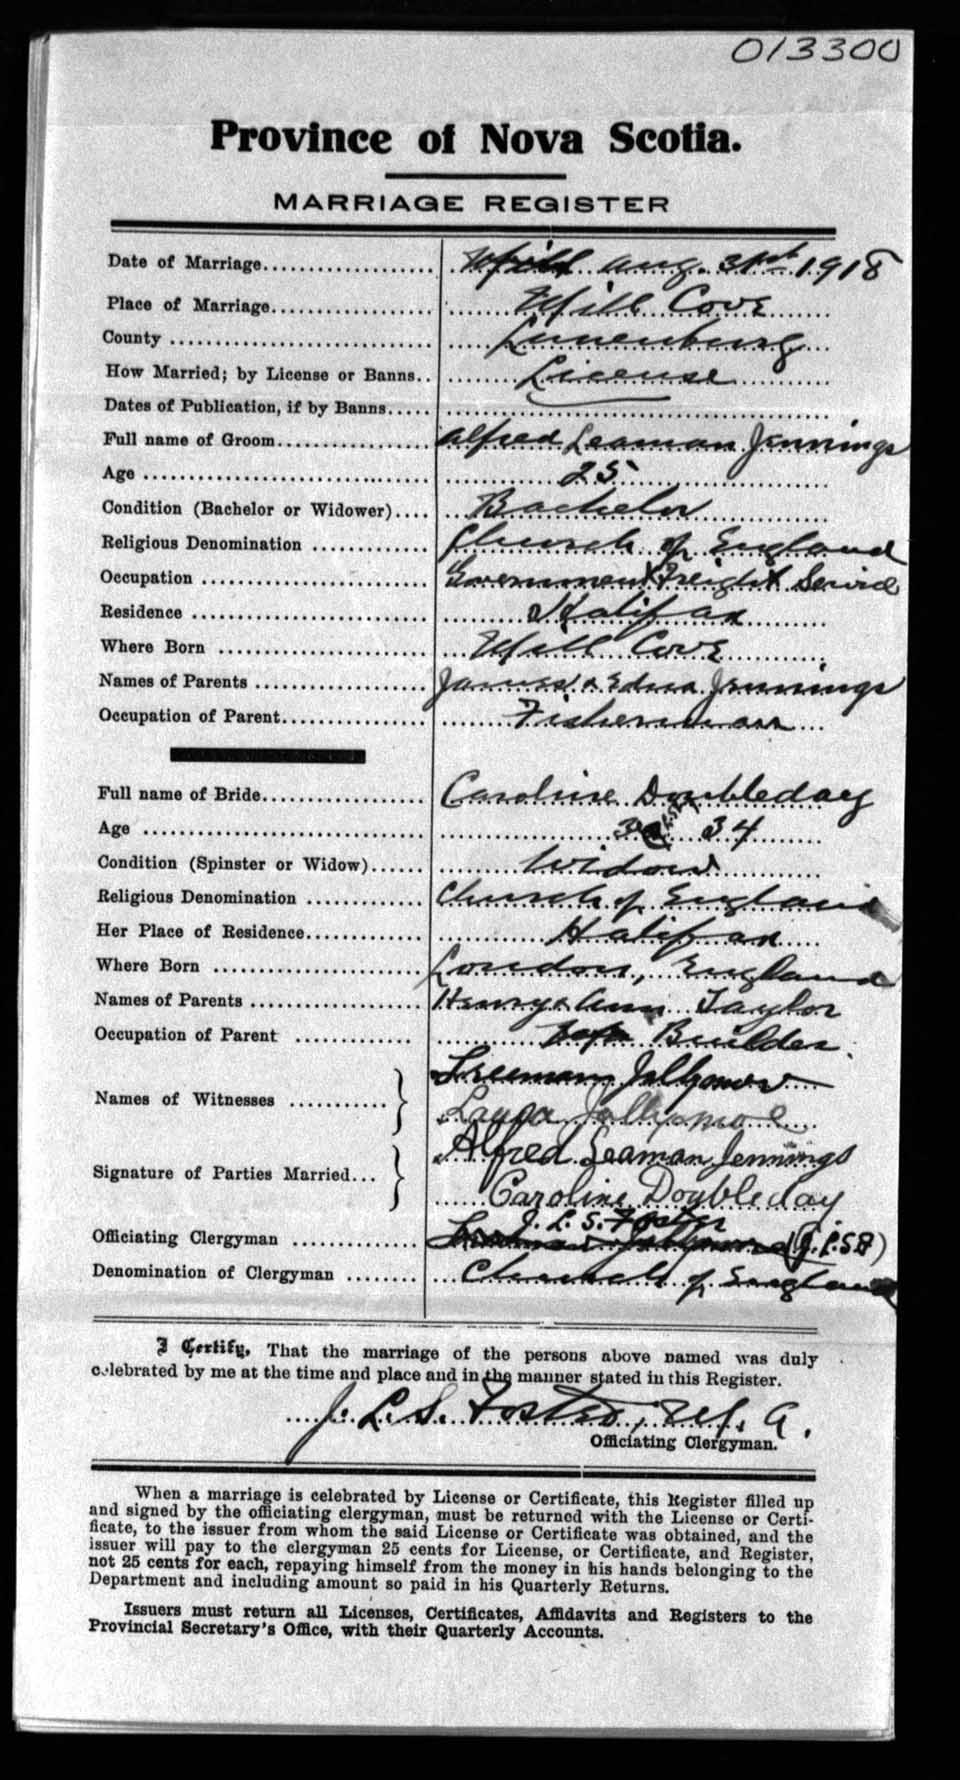 013300
Province of Nova Scotia.
MARRIAGE REGISTER
Date of Marriage.................... Aug. 31st 1918
Place of Marriage.................. Mill Cove
County ............................. Lunenburg
How Married; by License or Banns.. License
Dates of Publication, if by Banns.....
Full name of Groom................. Alfred Leaman Jennings
Age ................................ 25
Condition (Bachelor or Widower).... Bachelor
Religious Denomination ............. Church of England
Occupation ......................... Government Freight Service
Residence .......................... Halifax
Where Born ....................... Mill Cove
Names of Parents ................... James & Edna Jennings
Occupation of Parent................ Fisherman
Full name of Bride.................. Caroline Doubleday
Age ............................... 34
Condition (Spinster or Widow)...... Widow
Religious Denomination ............. Church of England
Her Place of Residence............. Halifax
Where Born ....................... London, England
Names of Parents ................... Henry & Ann Taylor
Occupation of Parent ............. Builder
Names of Witnesses ........... Freeman Jollymore
Laura Jollymore
Signature of Parties Married... Alfred Leaman Jennings
Caroline Doubleday
J. L. S. Foster
Officiating Clergyman .............. (J.L.S.F)
Denomination of Clergyman ........ Church of England
I Certify, That the marriage of the persons above named was duly
celebrated by me at the time and place and in the manner stated in this Register.
J. L. S. Foster, M. A.
Officiating Clergyman.
When a marriage is celebrated by License or Certificate, this Register filled up
and signed by the officiating clergyman, must be returned with the License or Certi-
ficate, to the issuer from whom the said License or Certificate was obtained, and the
issuer will pay to the clergyman 25 cents for License, or Certificate, and Register,
not 25 cents for each, repaying himself from the money in his hands belonging to the
Department and including amount so paid in his Quarterly Returns.
Issuers must return all Licenses, Certificates, Affidavits and Registers to the
Provincial Secretary's Office, with their Quarterly Accounts.